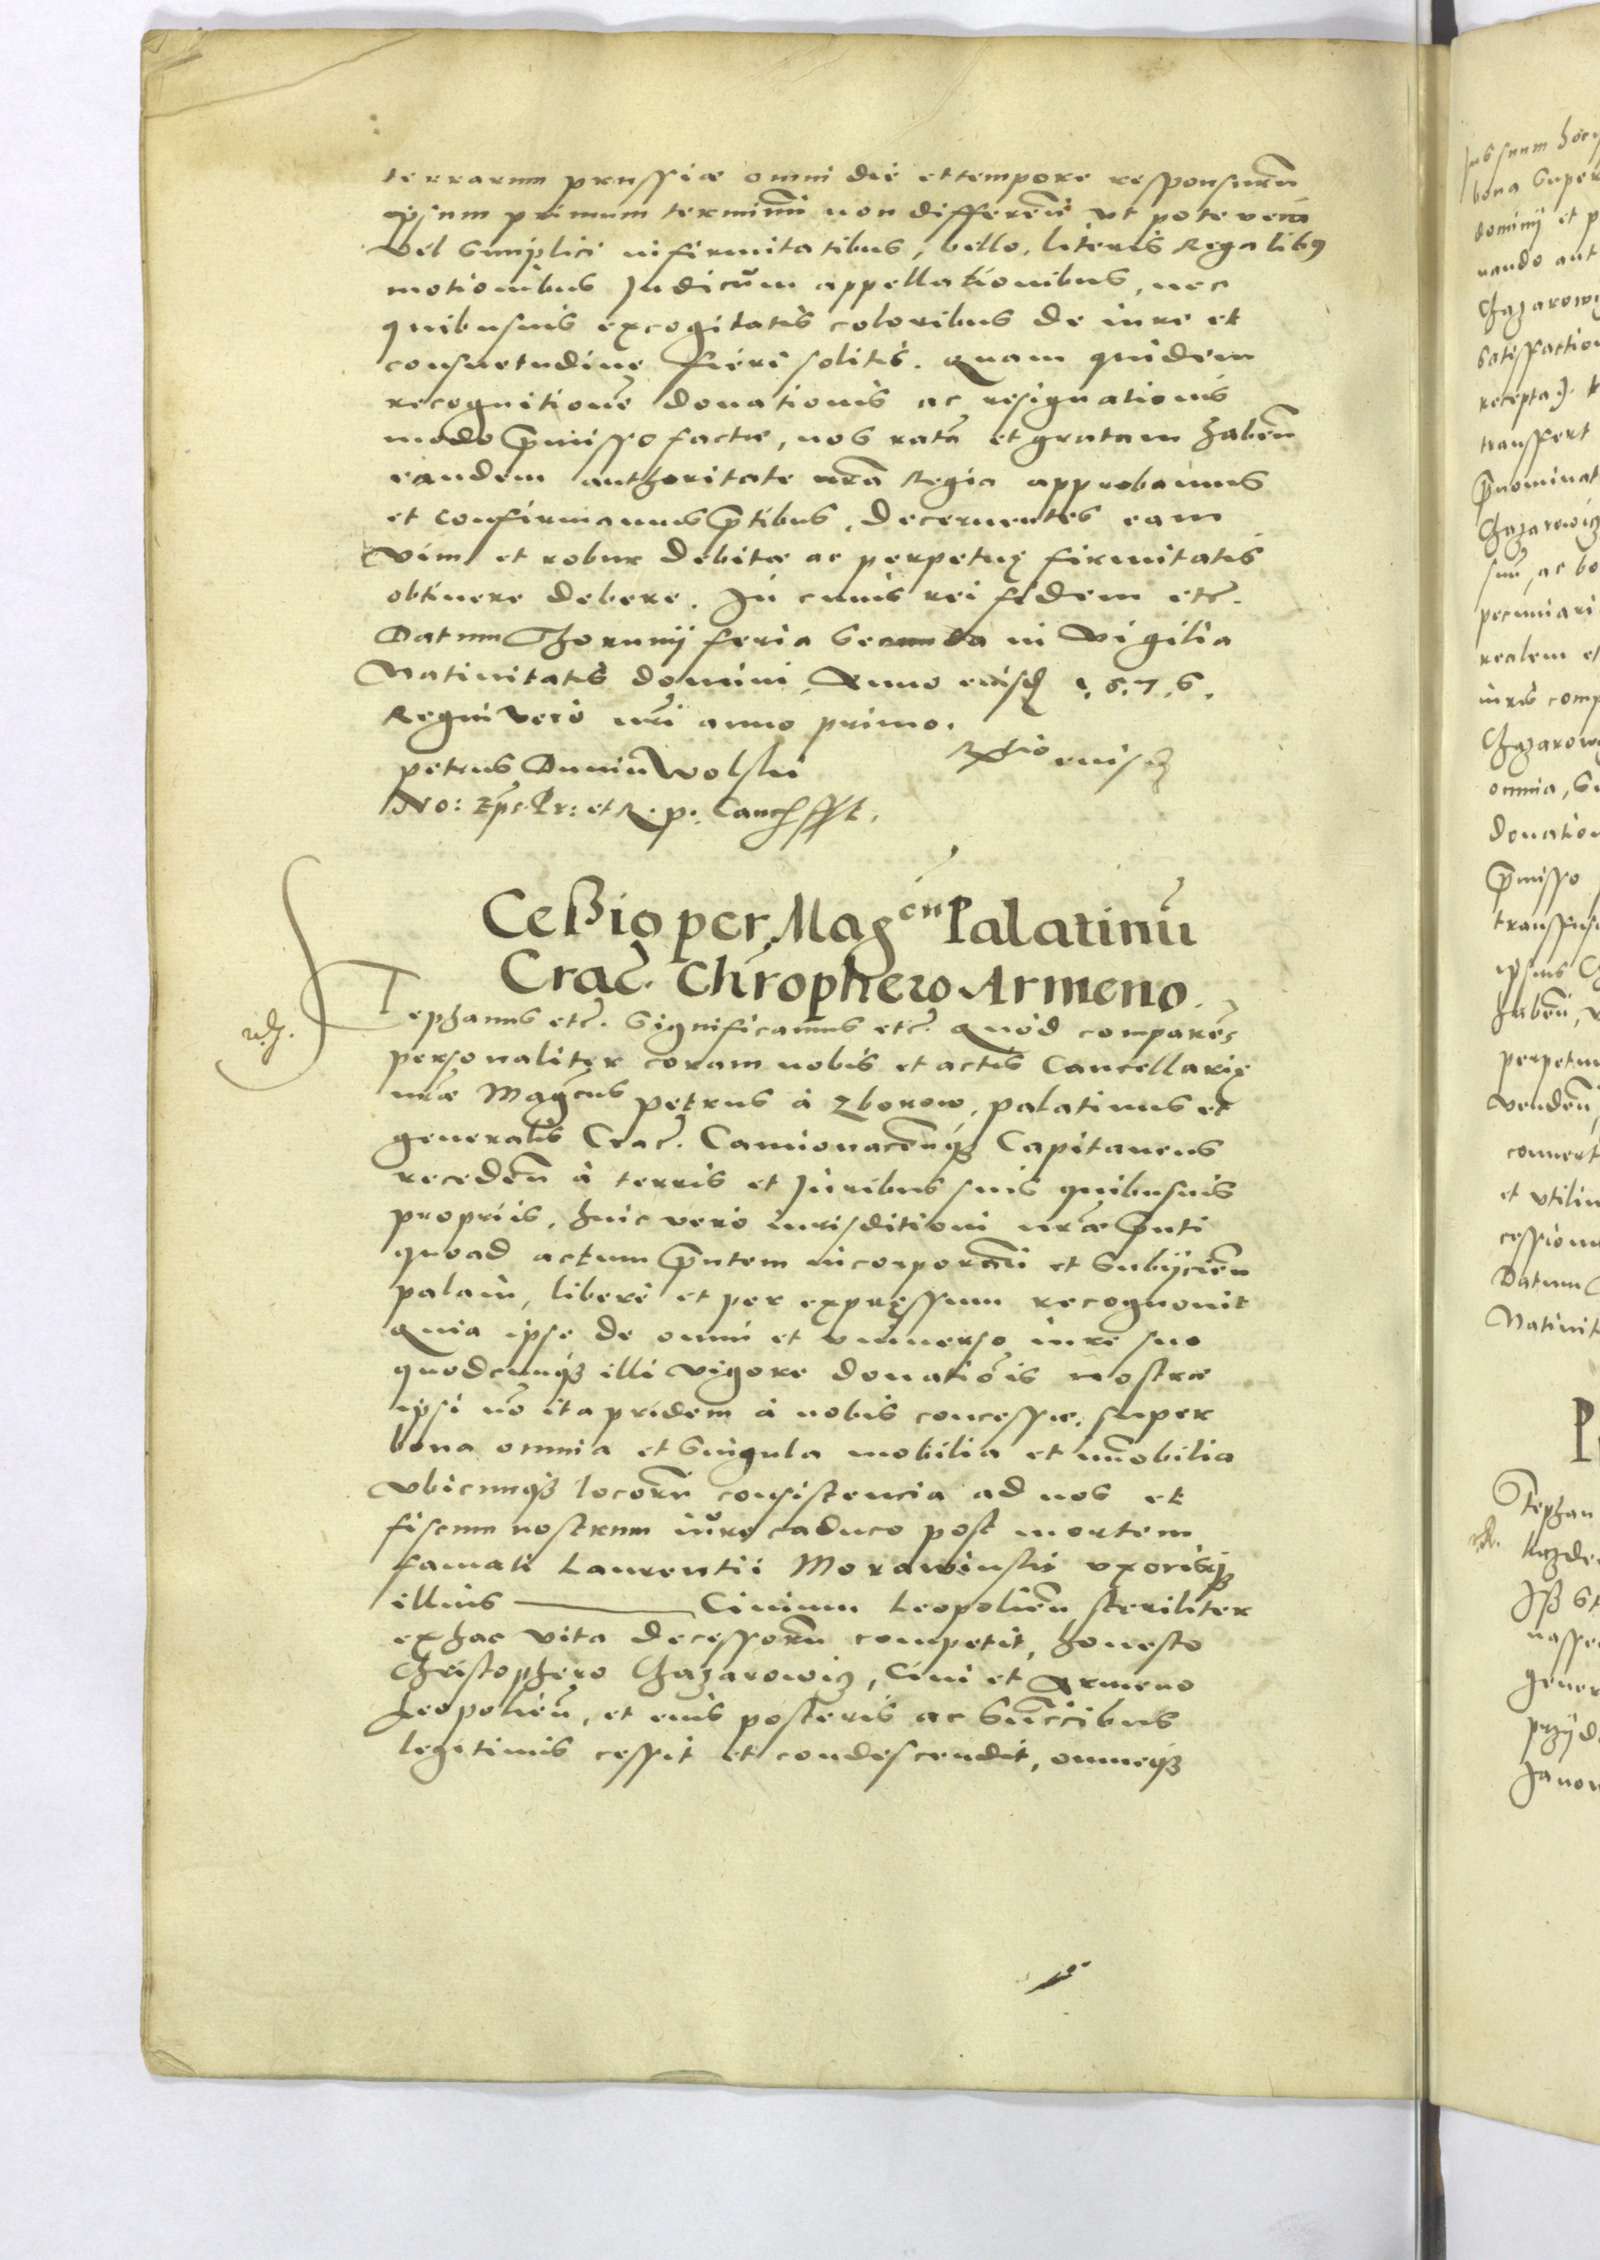 terrarum prussiæ omni die et tempore responsurū
ipsum primum terminū non differēn ut pote vera
vel simplici infirmitatibus, bello, literis Regalibus
motionibus Judicūm appellationibus, nec
quibusvis excogitatis coloribus de iure et
consuetudine fieri solitis. Quam quidem
recognitionē donationis ac resignationis
modo p̄misso factæ, nos ratā et gratam habēn
eandem authoritate nr̄a Regia approbamus
et confirmamus p̄ntibus, decernentes eam
vim et robur debitæ ac perpetuę firmitatis
obtinere debere. In cuius rei fidem etc̄.
Datum Thorunij feria secunda in vigilia
Nativitatis domini, Anno eiusd 1.5.7.6.
Regni vero nr̄i anno primo.
petrus Dunin Wolski Rҳtio eiusd
No: Ep̄s Pr: et R. p. Canc.
Ceßio per Mag^cu Palatinū
Crac̄. Chr̄ophero Armeno.
Stephanus etc̄. Significamus etc̄. Quod comparēs
rch.
personaliter coram nobis et actis Cancellarię
nr̄æ Mag̅cus petrus à Zborow, palatinus et
generalis Crac̄. Camionacēnqȝ Capitaneus
recedēn à terris et Juribus suis quibusvis
propriis, huic vero iurisditioni nr̄æ p̄nti
quoad actum p̄ntem incorporān et subijciēn
palam, libere et per expręssum recognovit
Quia ipse de omni et universo iure suo
quodcunqȝ illi vigore donatiōis nostræ
ipsi nō ita pridem à nobis concessæ, super
bona omnia et singula mobilia et im̄obilia
ubicunqȝ locorū consistencia ad nos et
fiscum nostrum iure caduco post mortem
famati Laurentii Morawinski uxorisqȝ
illius ——— Civium Leopoliēn steriliter
ex hac vita decessorū competit, honesto
Christophero Chazarowiȝ, Civi et Armeno
Leopoliēn, et eius posteris ac succ̄ibus
legitimis cessit et condescendit, omneqȝ
Jus suum
bona super
dominij et p
Chazarow
satisfaction
recepta
transfert
p̄nominat
Chazarowiȝ
suū, ac bo
pecuniari
realem et
iuris comp
Chazarow
omnia, su
Donation
p̄misso
transfus
ipsius C
habēn, v
perpetuu
vendēn,
convert
et utiliu
cessionu
Datum
Nativit
P
Stephan